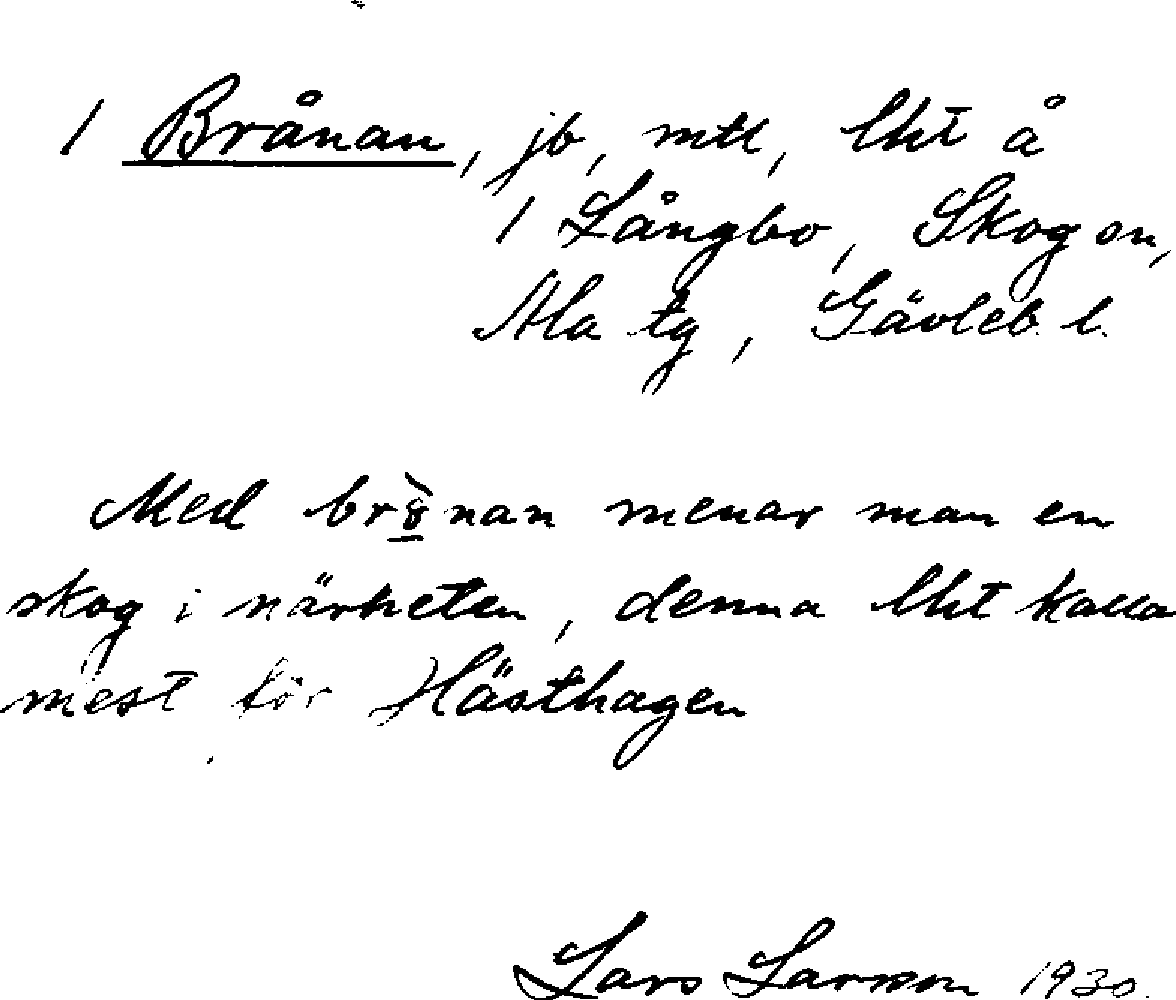 / Brånan, jb, mtl, lht å
/ Långbo, Skog sn,
Ala tg, Gävleb. l.
Med brön̲an menar man en
skog i närheten, denna lht kallas
mest för Hästhagen
Lars Larsson 1930.